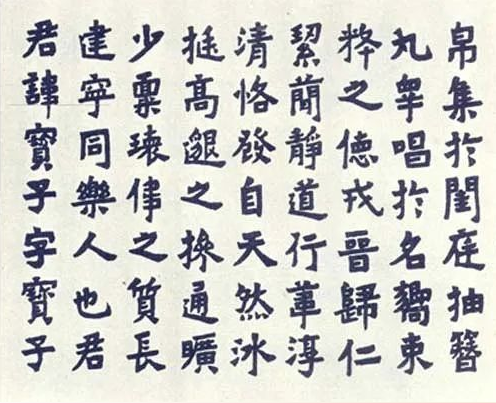 君諱寶子字寶子
建寧同樂人也君
少稟瓌偉之質長
挺高邈之操通曠
清恪發自天然冰
絜簡靜道行葦淳
粹之德戎晉歸仁
九皋唱於名響束
帛集於閨庭抽簪